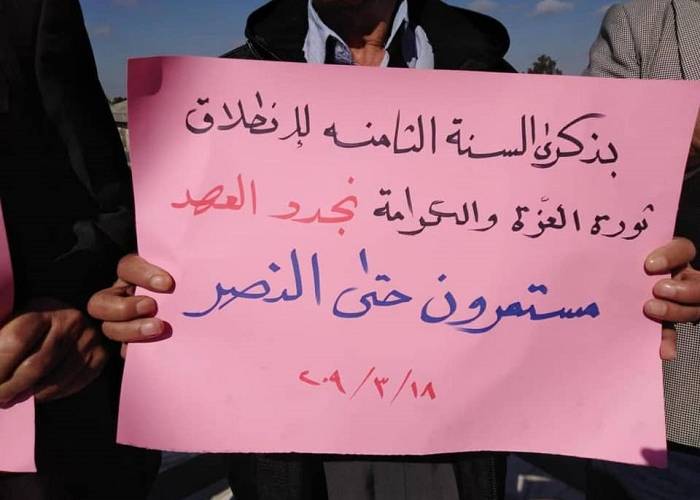 بذكرى السنة الثامنه للإنطلاق
ثورة العزّة والكرامة نجدد العهد
مستمرون حتى النصر
١٨/٣/٢٠٩